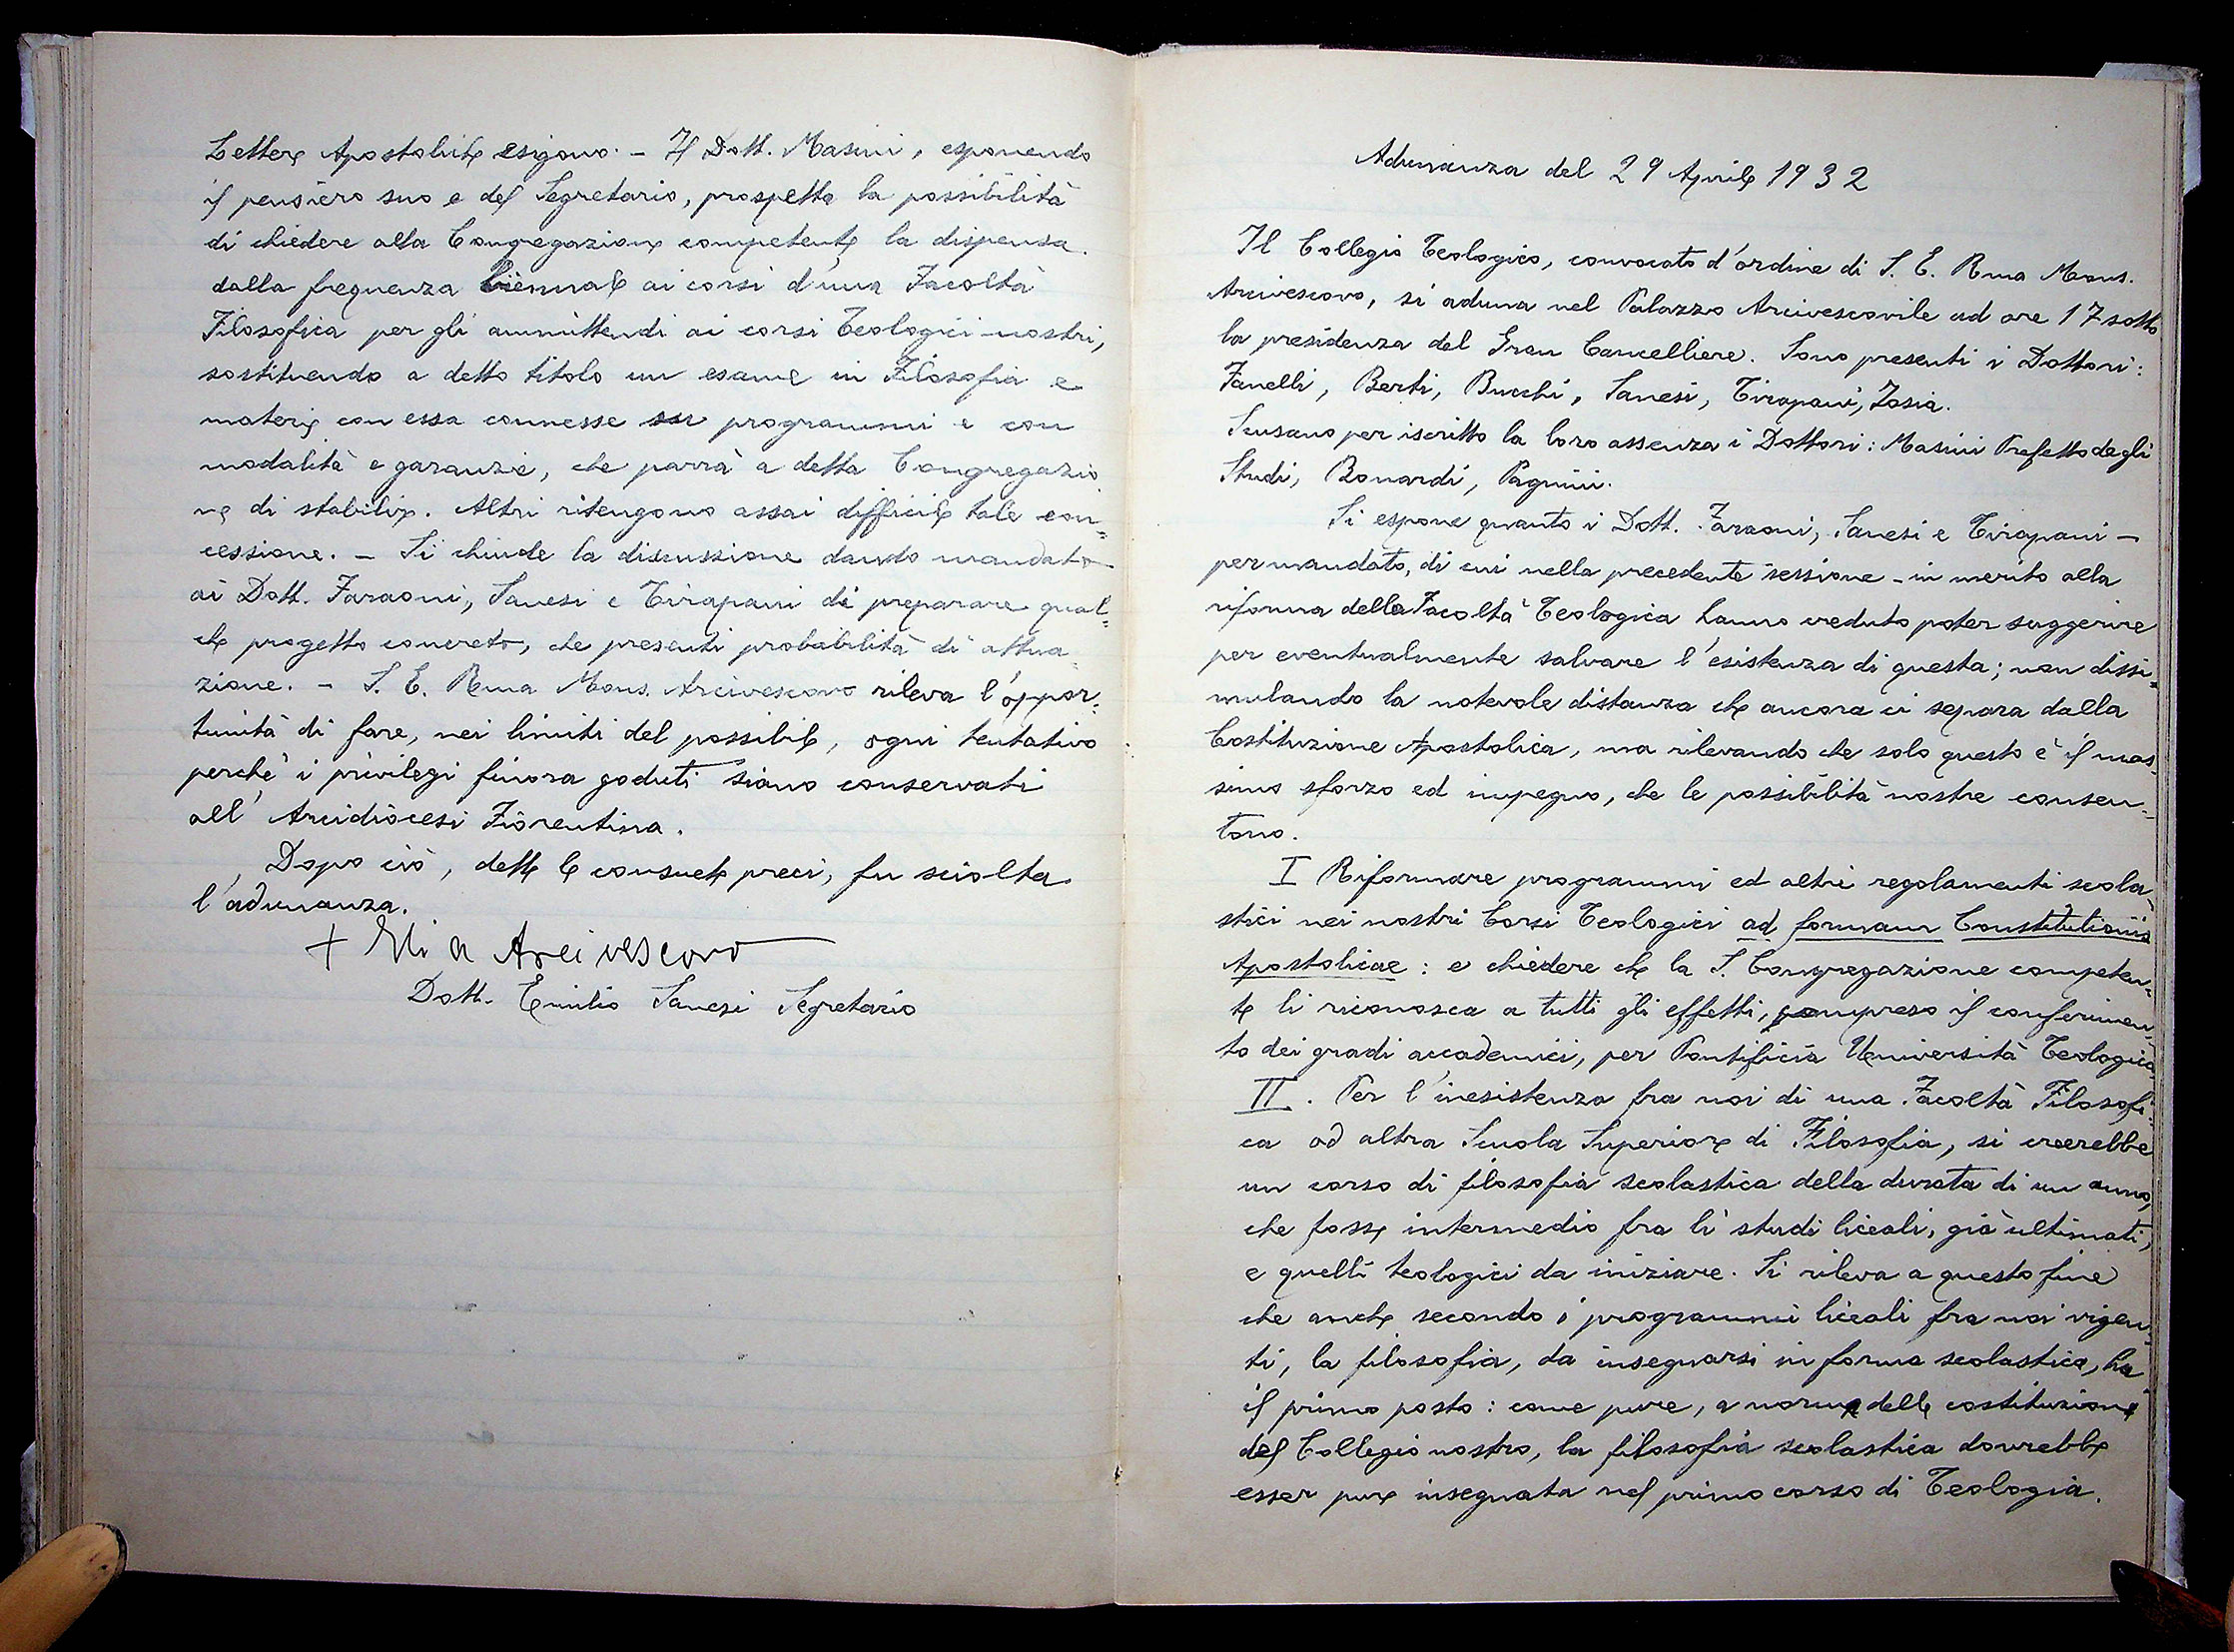 Lettere Apostoliche esigono. – Il Dott. Masini, esponendo
il pensiero suo e del Segretario, prospetta la possibilità
di chiedere alla Congregazione competente la dispensa
dalla frequenza biennale ai corsi d'una Facoltà
Filosofica per gli ammittendi ai corsi Teologici nostri,
sostituendo a detto titolo un esame in Filosofia e
materie con essa connesse su programmi e con
modalità e garanzie, che parrà a detta Congregazio
ne di stabilire. Altri ritengono assai difficile tale con=
cessione. – Si chiude la discussione dando mandato
ai Dott. Faraoni, Sanesi e Tirapani di preparare qual=
che progetto concreto, che presenti probabilità di attua=
zione. – S. E. Rma Mons. Arcivescovo rileva l'oppor=
tunità di fare, nei limiti del possibile, ogni tentativo
perchè i privilegi finora goduti siano conservati
all' Arcidiocesi Fiorentina.
Dopo ciò, dette le consuete preci, fu sciolta
l'adunanza.
+ Elia Arcivescovo
Dott. Emilio Sanesi Segretario
Adunanza del 29 Aprile 1932
Il Collegio Teologico, convocato d'ordine di S. E. Rma Mons.
Arcivescovo, si aduna nel Palazzo Arcivescovile ad ore 17 sotto
la presidenza del Gran Cancelliere. Sono presenti i Dottori:
Fanelli, Berti, Bucchi, Sanesi, Tirapani, Zosia.
Scusano per iscritto la loro assenza i Dottori: Masini Prefetto degli
Studi, Bonardi, Pagnini.
Si espone quanto i Dott. Faraoni, Sanesi e Tirapani –
per mandato, di cui nella precedente sessione – in merito alla
riforma della Facoltà Teologica hanno creduto poter suggerire
per eventualmente salvare l'esistenza di questa; non dissi=
mulando la notevole distanza che ancora ci separa dalla
Costituzione Apostolica, ma rilevando che solo questo è il mas=
simo sforzo ed impegno, che le possibilità nostre consen=
tono.
I Riformare programmi ed altri regolamenti scola=
stici nei nostri Corsi Teologici ad formam Constitutionis
Apostolicae: e chiedere che la S. Congregazione competen=
te li riconosca a tutti gli effetti, compreso il conferimen=
to dei gradi accademici, per Pontificia Università Teologica.
II. Per l'inesistenza fra noi di una Facoltà Filosofi=
ca od altra Scuola Superiore di Filosofia, si creerebbe
un corso di filosofia scolastica della durata di un anno,
che fosse intermedio fra li studi liceali, già ultimati,
e quelli teologici da iniziare. Si rileva a questo fine
che anche secondo i programmi liceali fra noi vigen=
ti, la filosofia, da insegnarsi in forma scolastica, ha
il primo posto: come pure, a norma delle costituzione
del Collegio nostro, la filosofia scolastica dovrebbe
esser pure insegnata nel primo corso di Teologia.